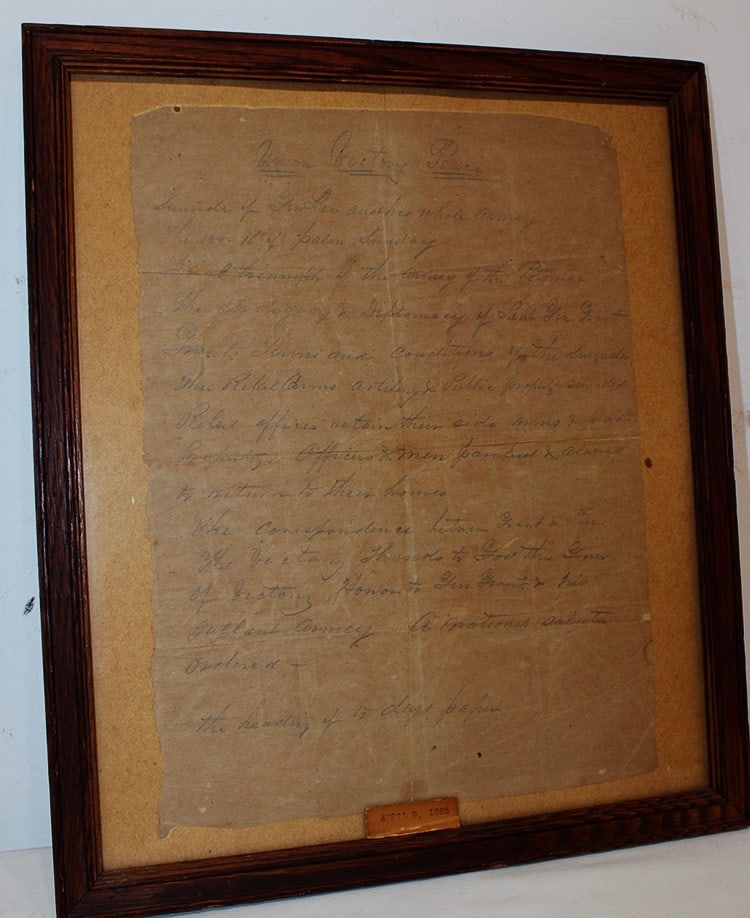 Union Victory Peace
Surrender of Gen Lee and his whole Armey
The work of palm Sunday
Final triumph of the Armey of the Potomac
The Strategy & Diplomacy of Lieut Gen Grant
Terms and conditions of the Surrender
The Rebel Arms artilery & Public property
Rebel officers retain their side arms &
property. Officers & men paroled &
to return to their homes
The corespondence between Grant & Lee
The Victory Thanks to God the Giver
of Victory Honor to Gen Grant & his
gallant armey A national salute
ordered —
the heading of to days paper
APRIL 9, 1865